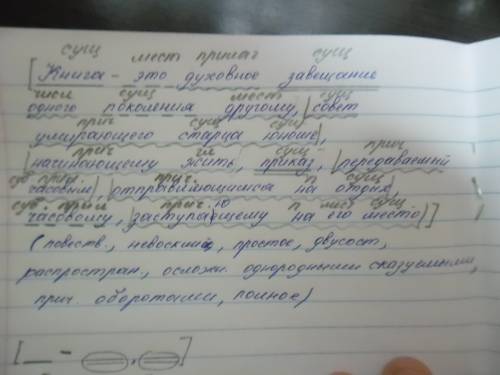 сущ мест прилаг сущ
[Книга - это духовное завещание
числ сущ мест сущ
одного поколения другому, совет
прич сущ сущ
умирающего старца юноше,
прич гл сущ прич
начинающему жить, приказ, передаваемый
прич. п сущ
часовым, отправляющимся на отдых,
прич. п мест сущ
часовому, заступающему на его место)]
(повеств., невосклиц, простое, двусост,
распростран, осложн. однородными сказуемыми,
прич. оборотами, полное)
[ - , ]